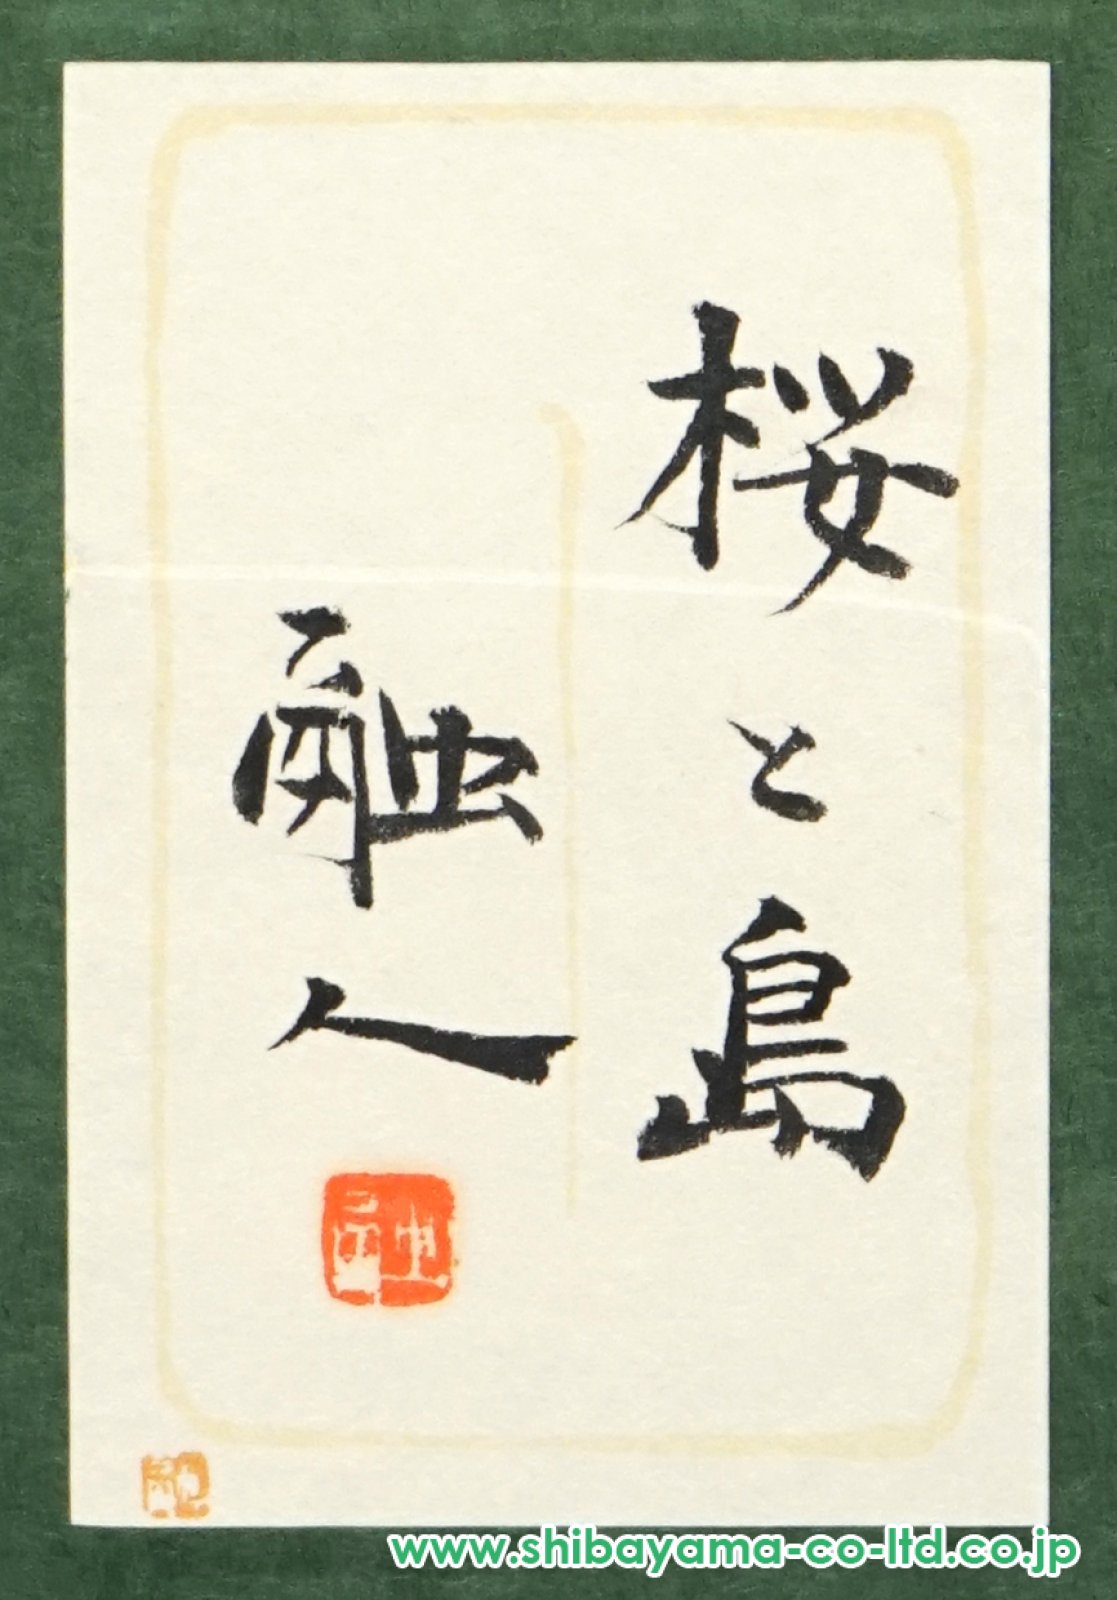 桜と島
融人
融
www.shibayama-co-ltd.co.jp